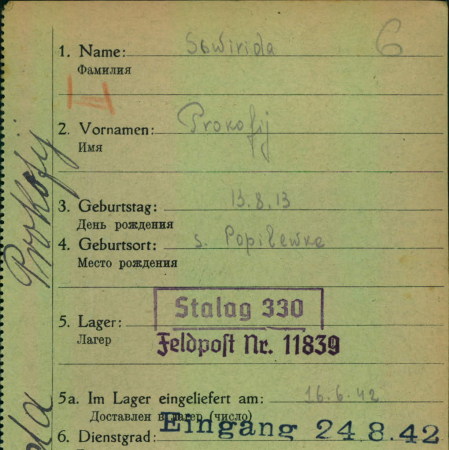 6
1. Name: Sawirida
Фамилия
2. Vornamen: Prokofij
Имя
3. Geburtstag: 13.8.13
День рождения
4. Geburtsort: s. Popilewke
Место рождения
Stalag 330
5. Lager:
Лагер
Feldpost Nr. 11839
5a. Im Lager eingeliefert am: 16.6.42
Доставлен в лагер (число)
Eingang 24.8.42
6. Dienstgrad:
Prokofy